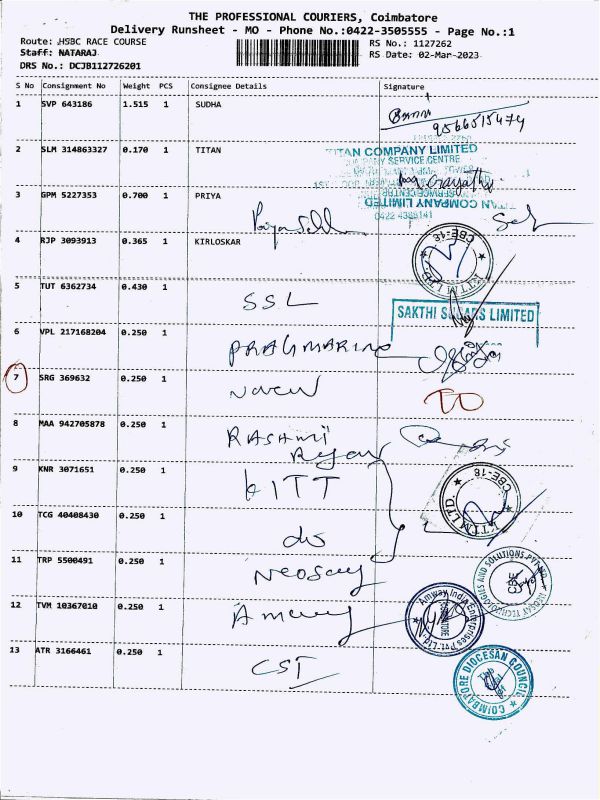 THE PROFESSIONAL COURIERS, Coimbatore
Delivery Runsheet - MO - Phone No.:0422-3505555 - Page No.:1
Route: HSBC RACE COURSE
RS No.: 1127262
Staff: NATARAJ
RS Date: 02-Mar-2023
DRS No.: DCJB112726201
S No Consignment No Weight PCS Consignee Details Signature
1 SVP 643186 1.515 1 SUDHA
9566515474
2 SLM 314863327 0.170 1 TITAN
TITAN COMPANY LIMITED
SERVICE CENTRE
3 GPM 5227353 0.700 1 PRIYA
TITAN COMPANY LIMITED
0422 4388141
4 RJP 3093913 0.365 1 KIRLOSKAR
CBE-18
KTTM LTD.
5 TUT 6362734 0.430 1 SSL
SAKTHI SUGARS LIMITED
6 VPL 217168204 0.250 1 PRAGMARINE
7 SRG 369632 0.250 1 Naveen TO
8 MAA 942705878 0.250 1 RASHMI
9 KNR 3071651 0.250 1 KITT
CBE-18
KTTM LTD
10 TCG 40408430 0.250 1 do
11 TRP 5500491 0.250 1
12 TVM 10367010 0.250 1 Amway
Amway India Enterprises Pvt. Ltd.
COIMBATORE
13 ATR 3166461 0.250 1 CSI
COIMBATORE DIOCESAN COUNCIL